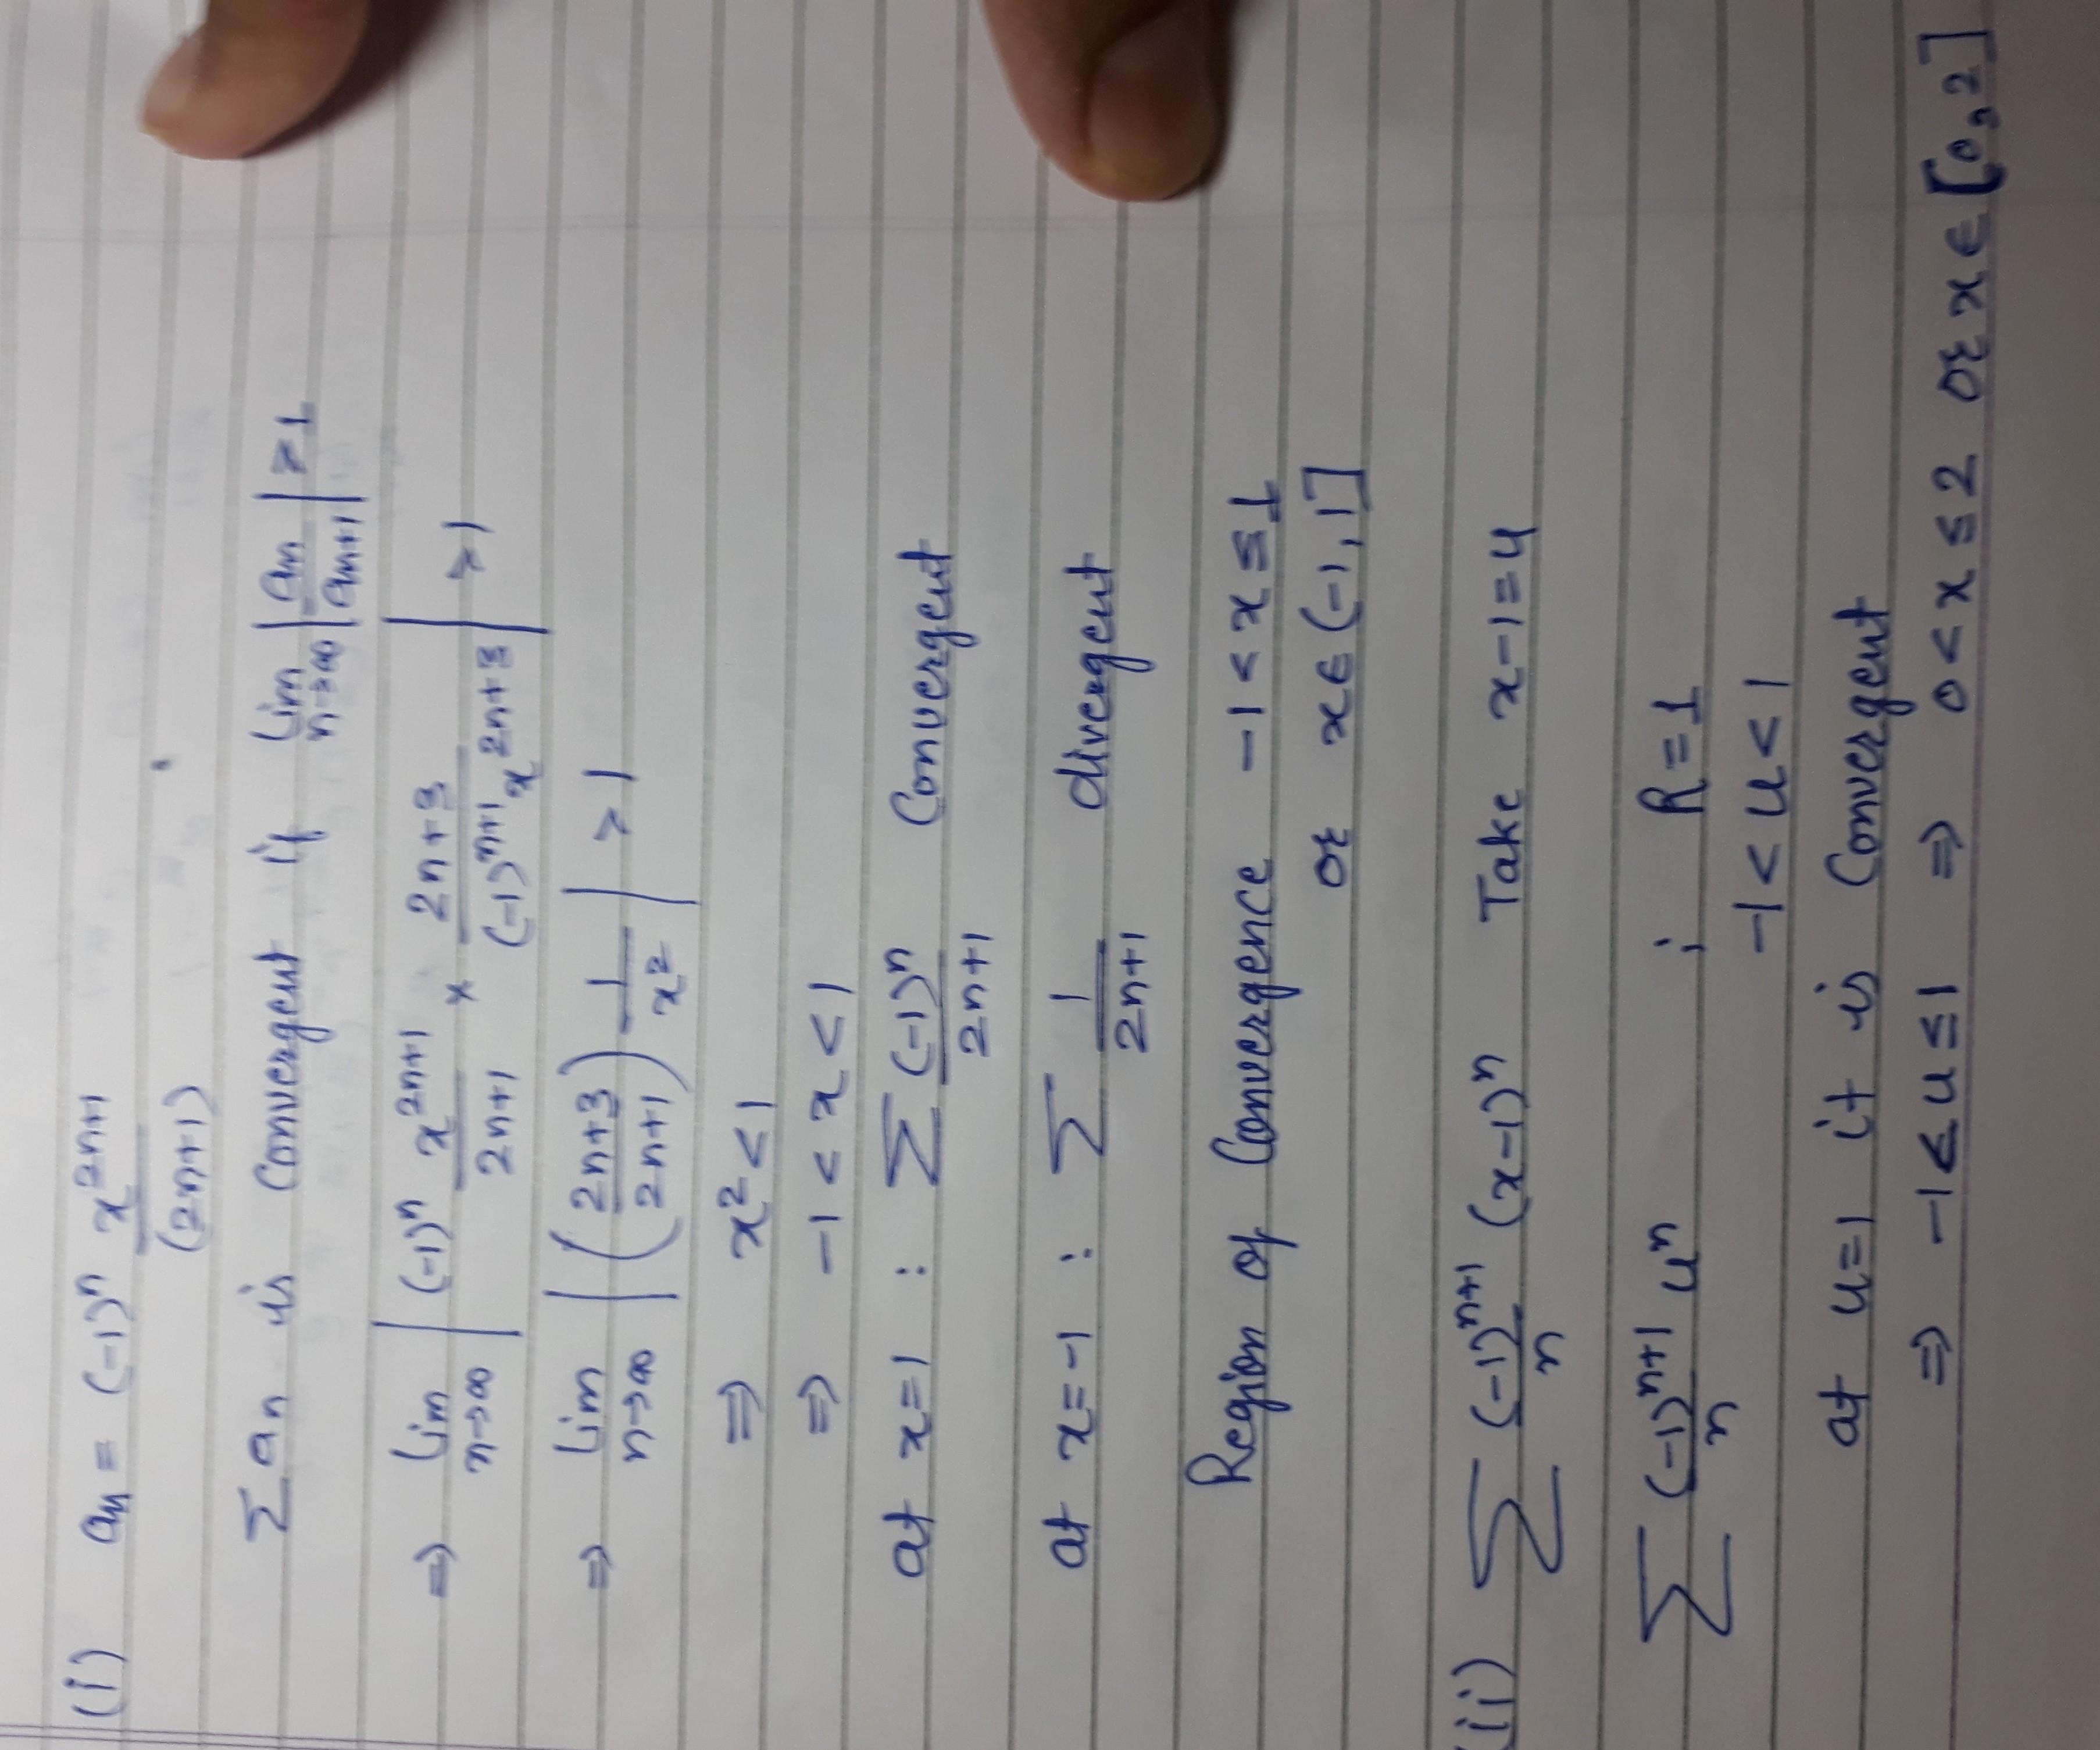 (i) an = (-1)^n x^(2n+1) / (2n+1)
Σ an is Convergent if lim n→∞ |an / an+1| > 1
⇒ lim n→∞ | (-1)^n x^(2n+1) / 2n+1 × 2n+3 / (-1)^(n+1) x^(2n+3) | > 1
⇒ lim n→∞ | (2n+3 / 2n+1) 1/x² | > 1
⇒ x² < 1
⇒ -1 < x < 1
at x=1 : Σ (-1)^n / 2n+1 Convergent
at x=-1 : Σ 1 / 2n+1 divergent
Region of Convergence -1 < x ≤ 1
or x ∈ (-1, 1]
(ii) Σ (-1)^(n+1) / n (x-1)^n Take x-1=u
Σ (-1)^(n+1) / n u^n ; R=1
-1 < u < 1
at u=1 it is Convergent
⇒ -1 < u ≤ 1 ⇒ 0 < x ≤ 2 or x ∈ [0, 2]